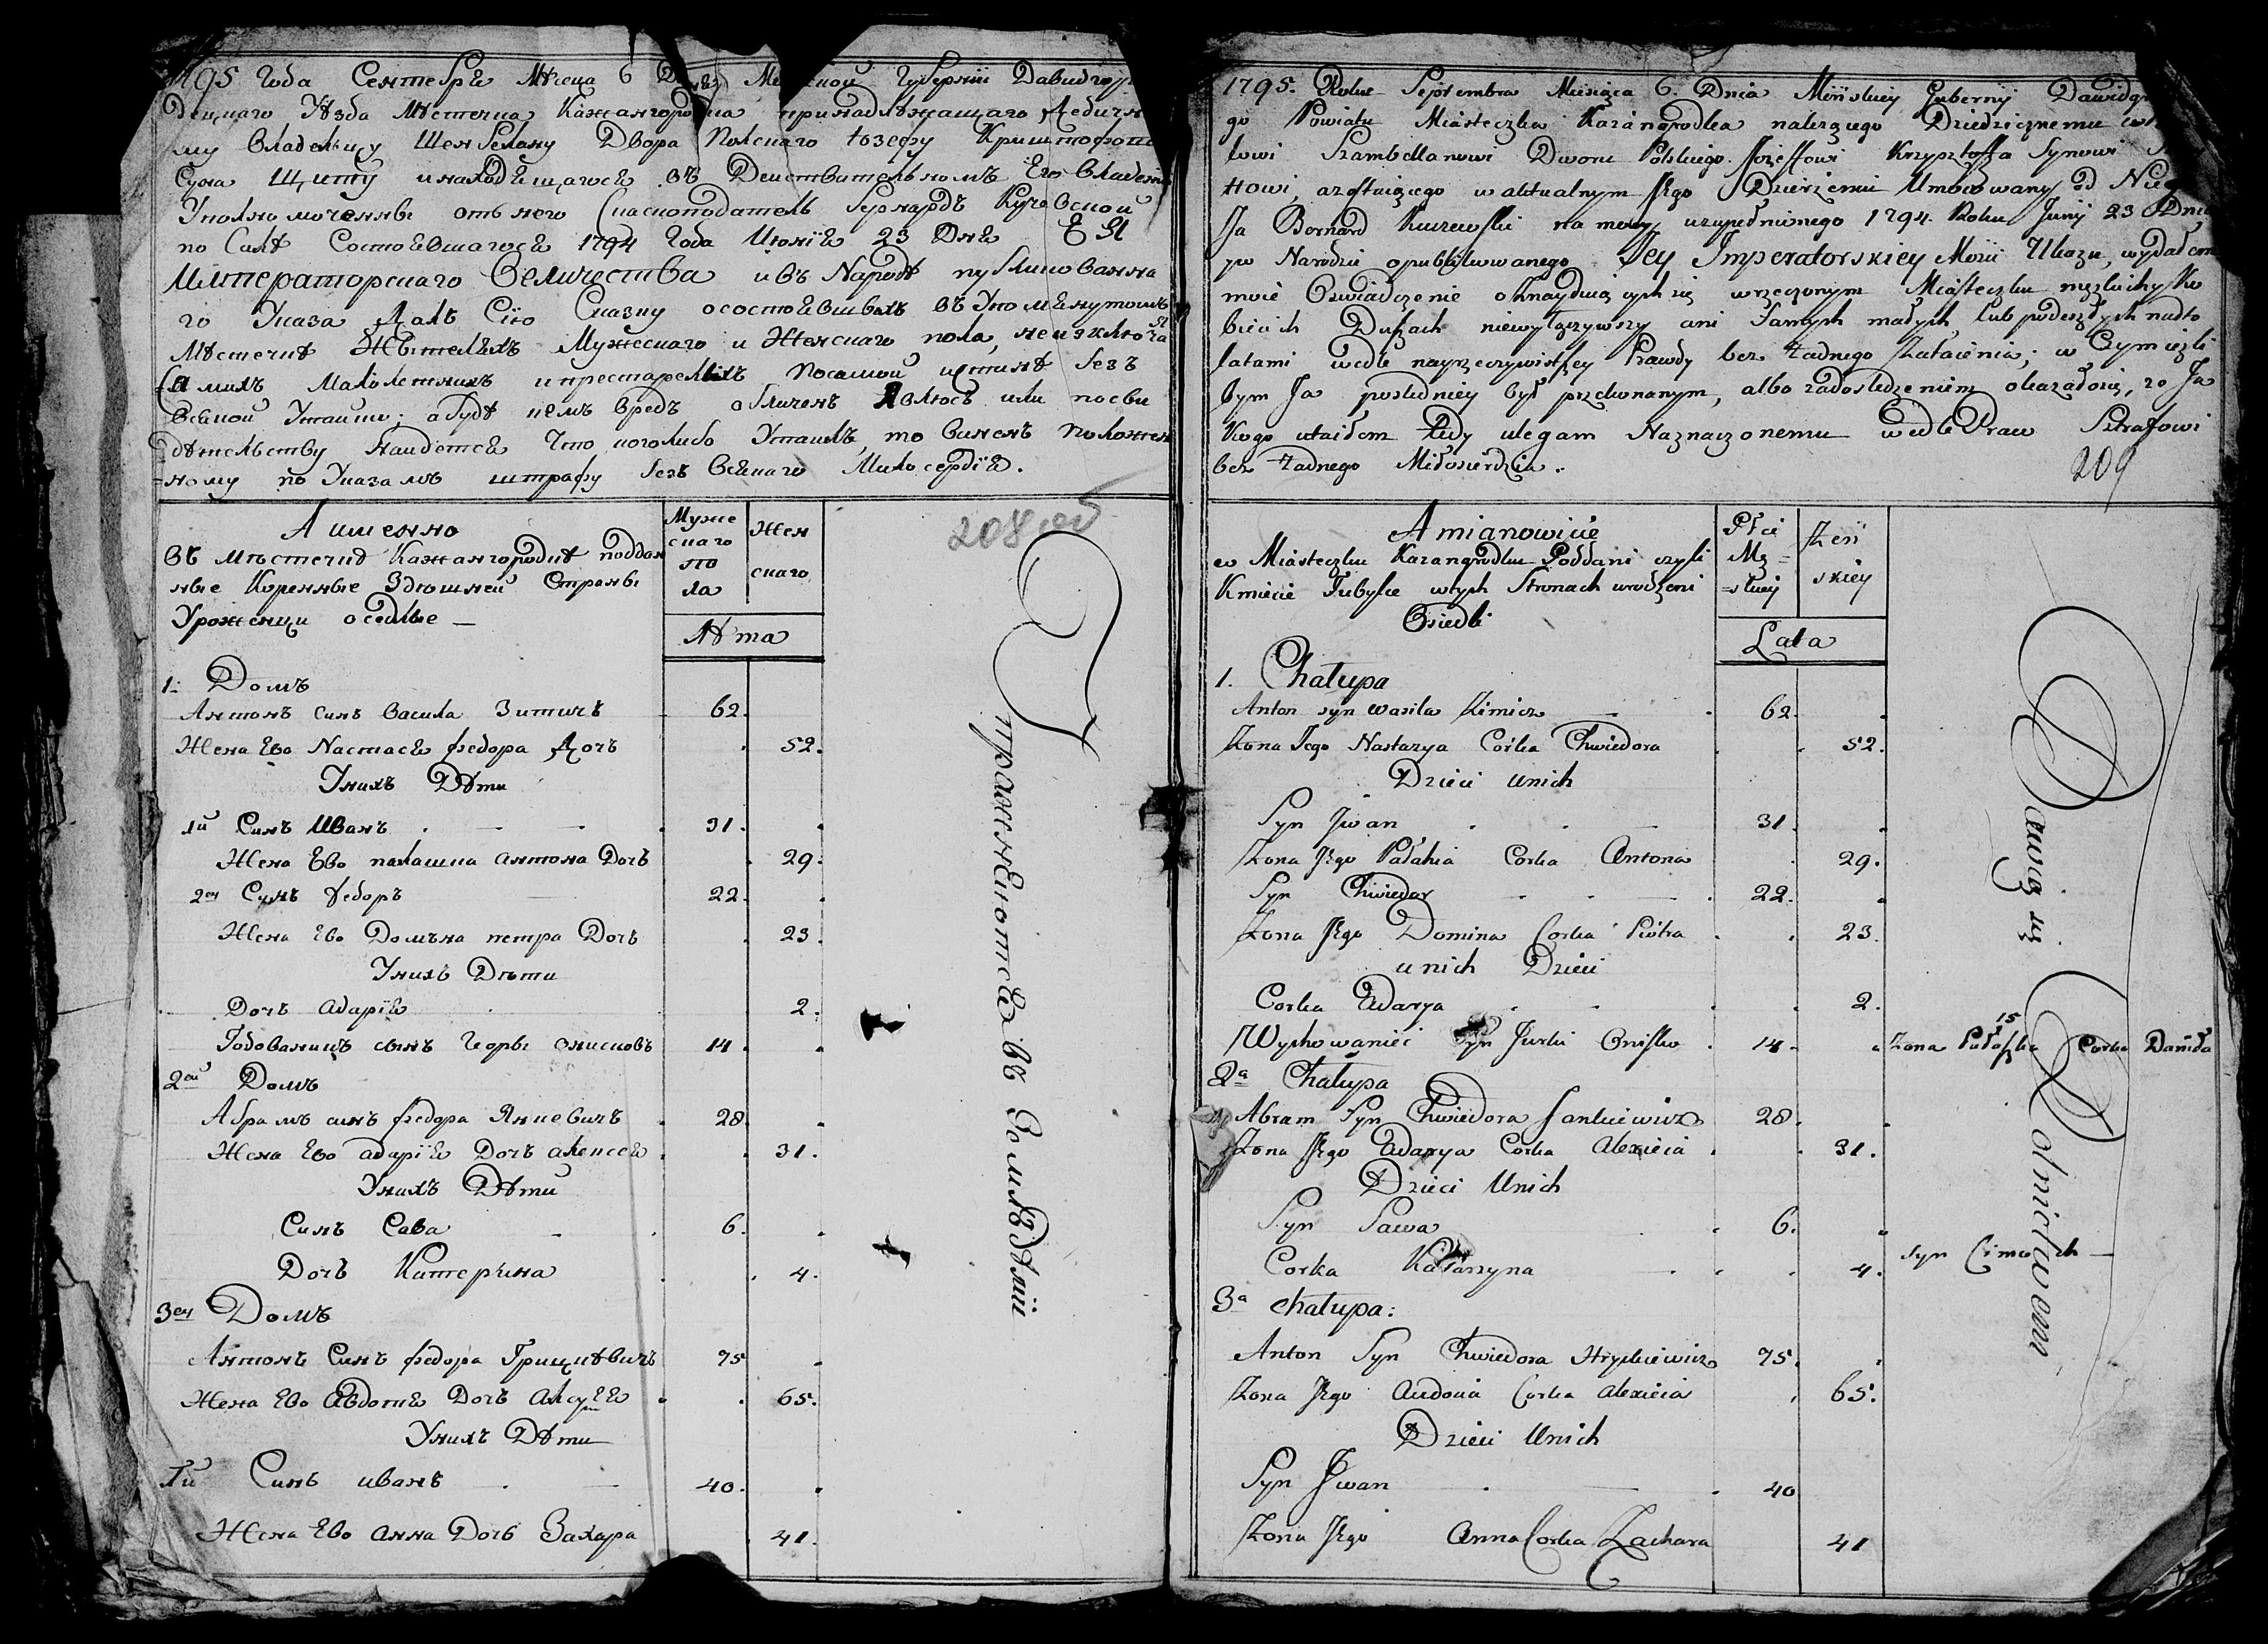 1795 Года Сентебрѣ Мѣсеца 6 Днѣ Губернии Давидгор
Децкаго Уѣзда Мѣстечка Кажангородка принадлежащаго Дедичн
му Владельцу Шенбелану Двора Полскаго Іозефу Криштофот
Суна Щиту инаходѣщагосѣ въ Деиствителномъ Его Владении
Уполномоченны отъ него Сказкоподатель Бернардъ Кучевской
по Силѣ Состоѣвшагосѣ 1794 Года Июніѣ 23 Днѣ Еѣ
Императорскаго Величества ивъ Народѣ публикованна
го Указа Далъ Сїю Сказку осостоѣвшвхъ въ Упоменутомъ
Мѣстечкѣ Жытелѣхъ Мужескаго и Женскаго пола, неизключаѣ
Самихъ Малолетнихъ ипрестарелыхъ посамой истинѣ безъ
Всѣкой Утайки; абудѣ чемъ вредъ обличенъ Явлюсь или посви
дѣтельству Наидетсѣ Что коголибо Утаилъ, то Виненъ положен
=ному по Указамъ штрафу безъ Всѣкаго Милосердіѣ.
208 об
А именно
Въ мѣстечкѣ Кажангородкѣ поддан
ные Коренные Здѣшней Страны
Уроженцы оседлые —
Муже
скаго
по
ла
Жен
скаго
Лѣта
1: Домъ
Антонъ синъ Васила Зимичъ 62.
Жена Ево Настасѣ федора Дочъ 52.
Унихъ Дѣти
1й Синъ Иванъ 31.
Жена Ево палашка антона Дочъ 29.
2ей Синъ Федоръ 22.
Жена Ево Домъна петра Дочъ 23.
Унихъ Дѣти
Дочъ адаріѣ 2.
Годованецъ синъ Юрки Онисковъ 14.
2ей Домъ
Абрамъ синъ федора Янкевичъ 28.
Жена Ево адаріѣ Дочъ алексеѣ 31.
Унихъ Дѣти
Синъ Сава 6.
Дочъ Катерина 4.
3ей Домъ
Антонъ Синъ федора Грицкѣвичъ 75
Жена Ево Авдотѣ Дочъ 65.
Унихъ Дѣти
1й Синъ иванъ 40.
Жена Ево анна Дочъ Захара 41.
упражнѣютсѣ въ Земледѣлїи
1795. Roku Septembra Miesiąca 6. Dnia Mińskiey Gubernij Dawidgr
go Powiatu Miasteczka Każangrodka należącego Dziedzicznemu
lowi Szambellanowi Dworu Polskiego Jozeffowi Krzysztoffa Synowi
ttowi, azostaiącego w aktualnym Jego Dzierżeniu Umocowany od Niego
Ja Bernard Kuczewski na mocy uzupełnionego 1794. Roku Junij 23 Dnia
yw Narodzie opublikowanego Jey Imperatorskiey Mości Ukazu, wydałem
moie Oswiadczenie oSnayduiących się wrzeczonym Miasteczku męzkich y Ko
biecich Duszach niewyłączywszy ani Samych małych, lub podeszłych nadto
latami wedle nayrzeczywistszey Prawdy bez żadnego Zataienia; w Czym ieźli
bym Ja poslednieÿ był przekonanym, albo zadosledzeniem okazałosię, że Ja
Kogo utaiłem tedy ulegam Naznaczonemu wedle Praw Sztrafowi
bez żadnego Miłosierdzia.
209
Amianowicie
w Miasteczku Kazangrodku Poddani czyli
Kmiecie Tubylce wtych Stronach urodzeni
Osiedli
Płci
Mę=
=skiey
Żeń
skiey
Lata
1. Chałupa
Anton syn Wasila Zimicz 62.
Żona Jego Nastazya Corka Chwiedora 52.
Dzieci unich
Syn Jwan 31.
Żona Jego Pałahia Corka Antona 29.
Syn Chwiedor 22.
Żona Jego Domina Corka Piotra 23.
unich Dzieci
Corka Adarya 2.
Wychowaniec Syn Jurki Onisko 14. Żona Pałaszka 15 Corka Daniła
2ª Chałupa
Abram Syn Chwiedora Jankiewicz 28.
Żona Jego Adarya Corka Alexieia 31.
Dzieci Unich
Syn Sawa 6.
Corka Katarzyna 4. syn Cimoch —
3ª chałupa:
Anton Syn Chwiedora Hryckiewicz 75.
Żona Jego Audocia Corka Alexieia 65.
Dzieci Unich
Syn Jwan 40
Żona Jego Anna Corka Zachara 41
Bawią się Rolnictwem